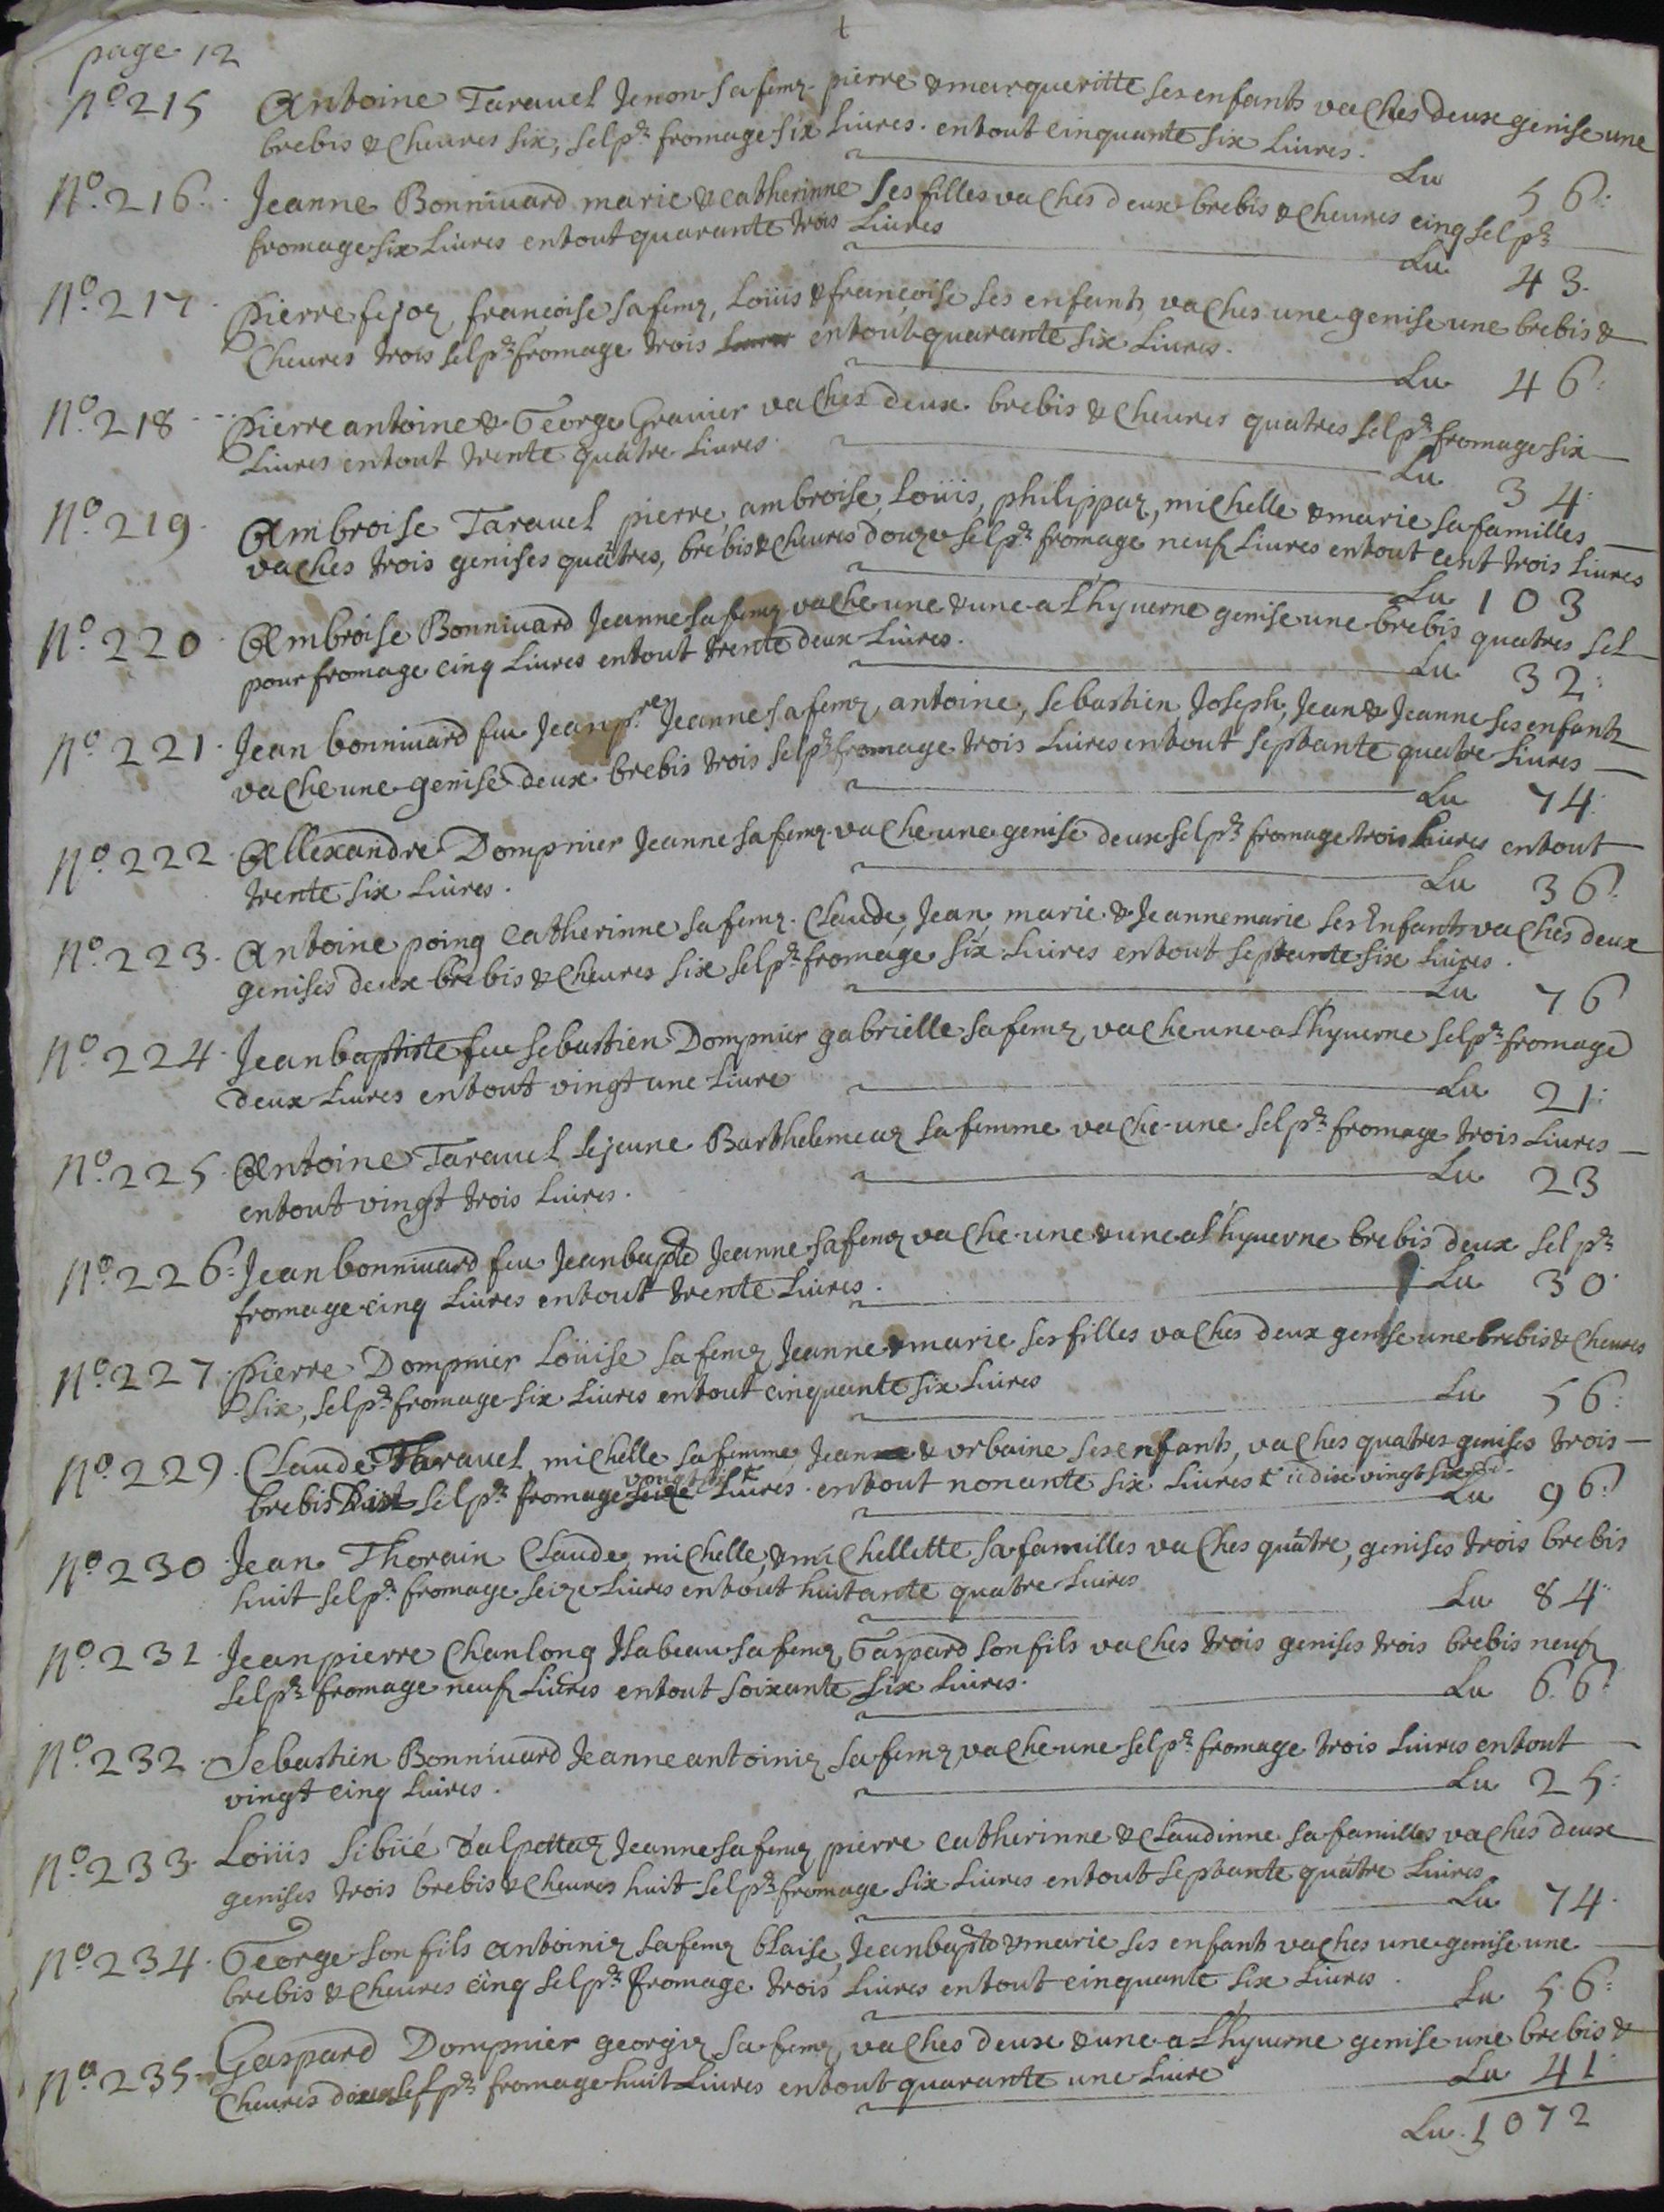 page 12
N.o 215 Antoine Tarauel Jenon sa femz. pierre & margueritte ses enfants vaches deux genise une
brebis & cheures six, sel pr. fromage six Liures. entout cinquante six Liures.
Lu 56:
N.o 216. Jeanne Bonniuard marie & catherinne ses filles vaches deux brebis & cheures cinq sel pr.
fromage six Liures entout quarante trois Liures
Lu 43.
N.o 217. Pierre fejoz francoise sa femz, Loüis & françoise ses enfants vaches une genise une brebis &
Cheures trois sel pr. fromage trois entout quarante six Liures.
Lu 46:
N.o 218 Pierre antoine & George Grauier vaches deux. brebis & cheures quatres sel pr. fromage six
Liures entout trente quatre Liures.
Lu 34:
N.o 219. Ambroise Tarauel pierre, ambroise, Loüis, philippaz, michelle & marie sa familles
vaches trois genises quatres, brebis & cheures douze sel pr. fromage neuf Liures entout cent trois Liures
Lu 103
N.o 220. Ambroise Bonniuard Jeanne sa femz vache une & une a Lhyuerne genise une brebis quatres sel
pour fromage cinq Liures entout trente deux Liures.
Lu 32:
N.o 221. Jean bonniuard feu Jean p.re Jeanne sa femz, antoine, sebastien, Joseph, Jean & Jeanne ses enfants
vache une genise deux brebis trois sel pr. fromage trois Liures entout septante quatre Liures
Lu 74:
N.o 222. Allexandre Dompnier Jeanne sa femz. vache une genise deux sel pr. fromage trois Liures entout
trente six Liures.
Lu 36:
N.o 223. Antoine poing Catherinne sa femz. Claude, Jean, marie & Jeanne marie ses Enfants vaches deux
genises deux brebis & cheures six sel pr. fromage six Liures entout septante six Liures.
Lu 76
N.o 224. Jean baptiste feu sebastien Dompnier gabrielle sa femz, vache une a Lhyuerne sel pr. fromage
deux Liures entout vingt une Liure
Lu 21:
N.o 225. Antoine Tarauel Lejeune Barthelemeaz sa femme vache une sel pr. fromage trois Liures
entout vingt trois Liures.
Lu 23
N.o 226: Jean bonniuard feu Jean bapte Jeanne sa femz vache une & une a Lhyuerne brebis deux sel pr.
fromage cinq Liures entout trente Liures.
Lu 30.
N.o 227. Pierre Dompnier Loüise sa femz Jeanne & marie ses filles vaches deux genise une brebis & cheures
six, sel pr. fromage six Liures entout cinquante six Liures
Lu 56:
N.o 229. Claude Tarauel michelle sa femme, Jean & vrbaine ses enfants, vaches quatres genises trois
brebis huit sel pr. fromage Liures. entout nonante six Liures
Lu 96:
N.o 230 Jean Thorain Claude, michelle, & michellette sa familles vaches quatre, genises trois brebis
huit sel pr. fromage seize Liures entout huitante quatre Liures
Lu 84:
N.o 231 Jean pierre Chanlong Isabeau sa femz, Gaspard son fils vaches trois genises trois brebis neuf
sel pr. fromage neuf Liures entout soixante six Liures.
Lu 66:
N.o 232. Sebastien Bonniuard Jeanne antoiniz sa femz, vache une sel pr. fromage trois Liures entout
vingt cinq Liures.
Lu 25:
N.o 233. Loüis Sibüé dalpettaz Jeanne sa femz, pierre catherinne & Claudinne sa familles vaches deux
genises trois brebis & cheures huit sel pr. fromage six Liures entout septante quatre Liures
Lu 74.
N.o 234. George son fils antoiniz sa femz blaise, Jean bapte & marie ses enfants vaches une genise une
brebis & cheures cinq sel pr. fromage trois Liures entout cinquante six Liures.
Lu 56:
N.o 235. Gaspard Dompnier georgiz sa femz, vaches deux & une a Lhyuerne genise une brebis &
Cheures sel pr. fromage huit Liures entout quarante une Liure
Lu 41
Lu. 1072